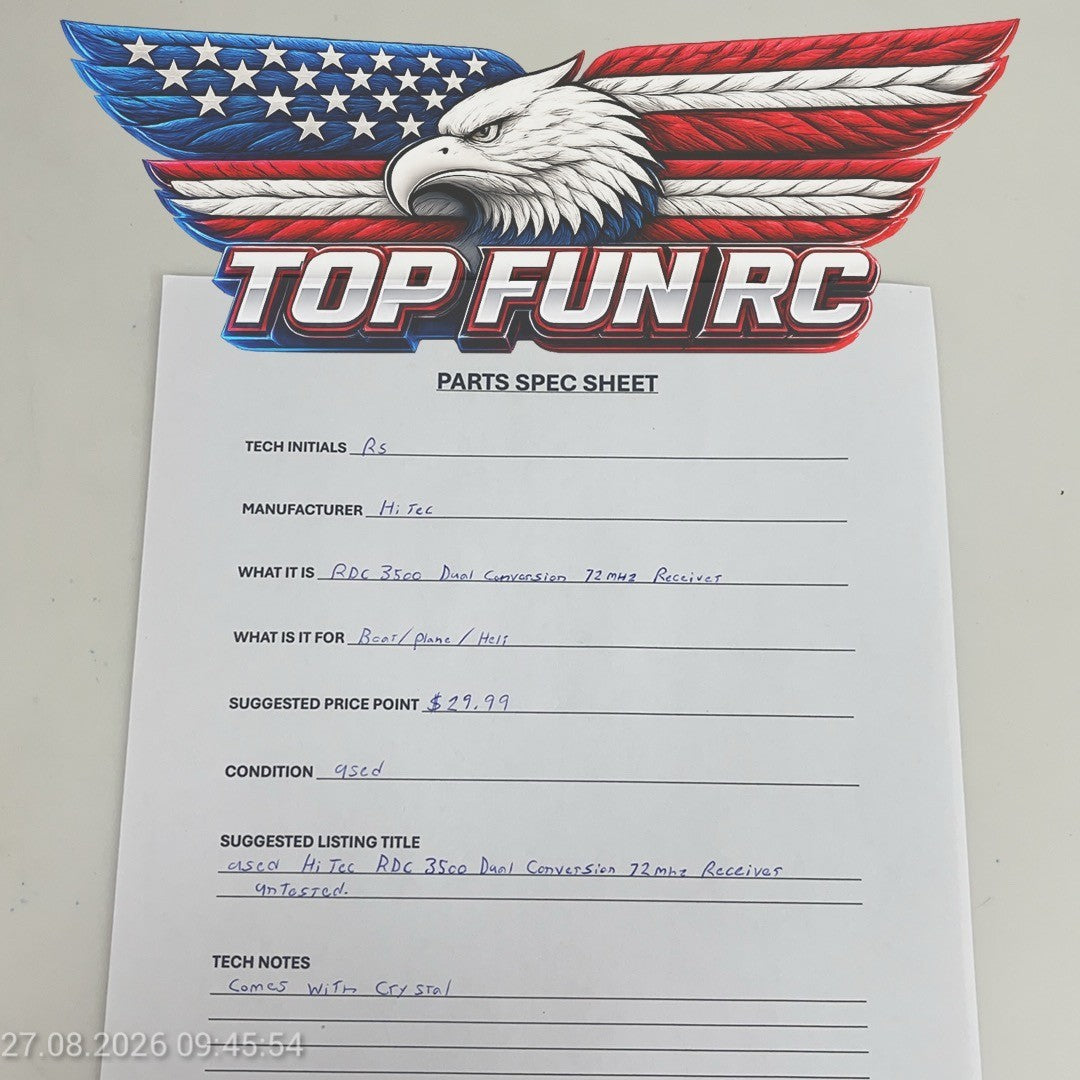 TOP FUN RC
PARTS SPEC SHEET
TECH INITIALS Rs
MANUFACTURER HiTec
WHAT IT IS RDC 3500 Dual Conversion 72mHz Receiver
WHAT IS IT FOR Boat/plane/Heli
SUGGESTED PRICE POINT $29.99
CONDITION used
SUGGESTED LISTING TITLE
used HiTec RDC 3500 Dual Conversion 72mhz Receiver
unTested.
TECH NOTES
Comes WiTh Crystal
27.08.2026 09:45:54